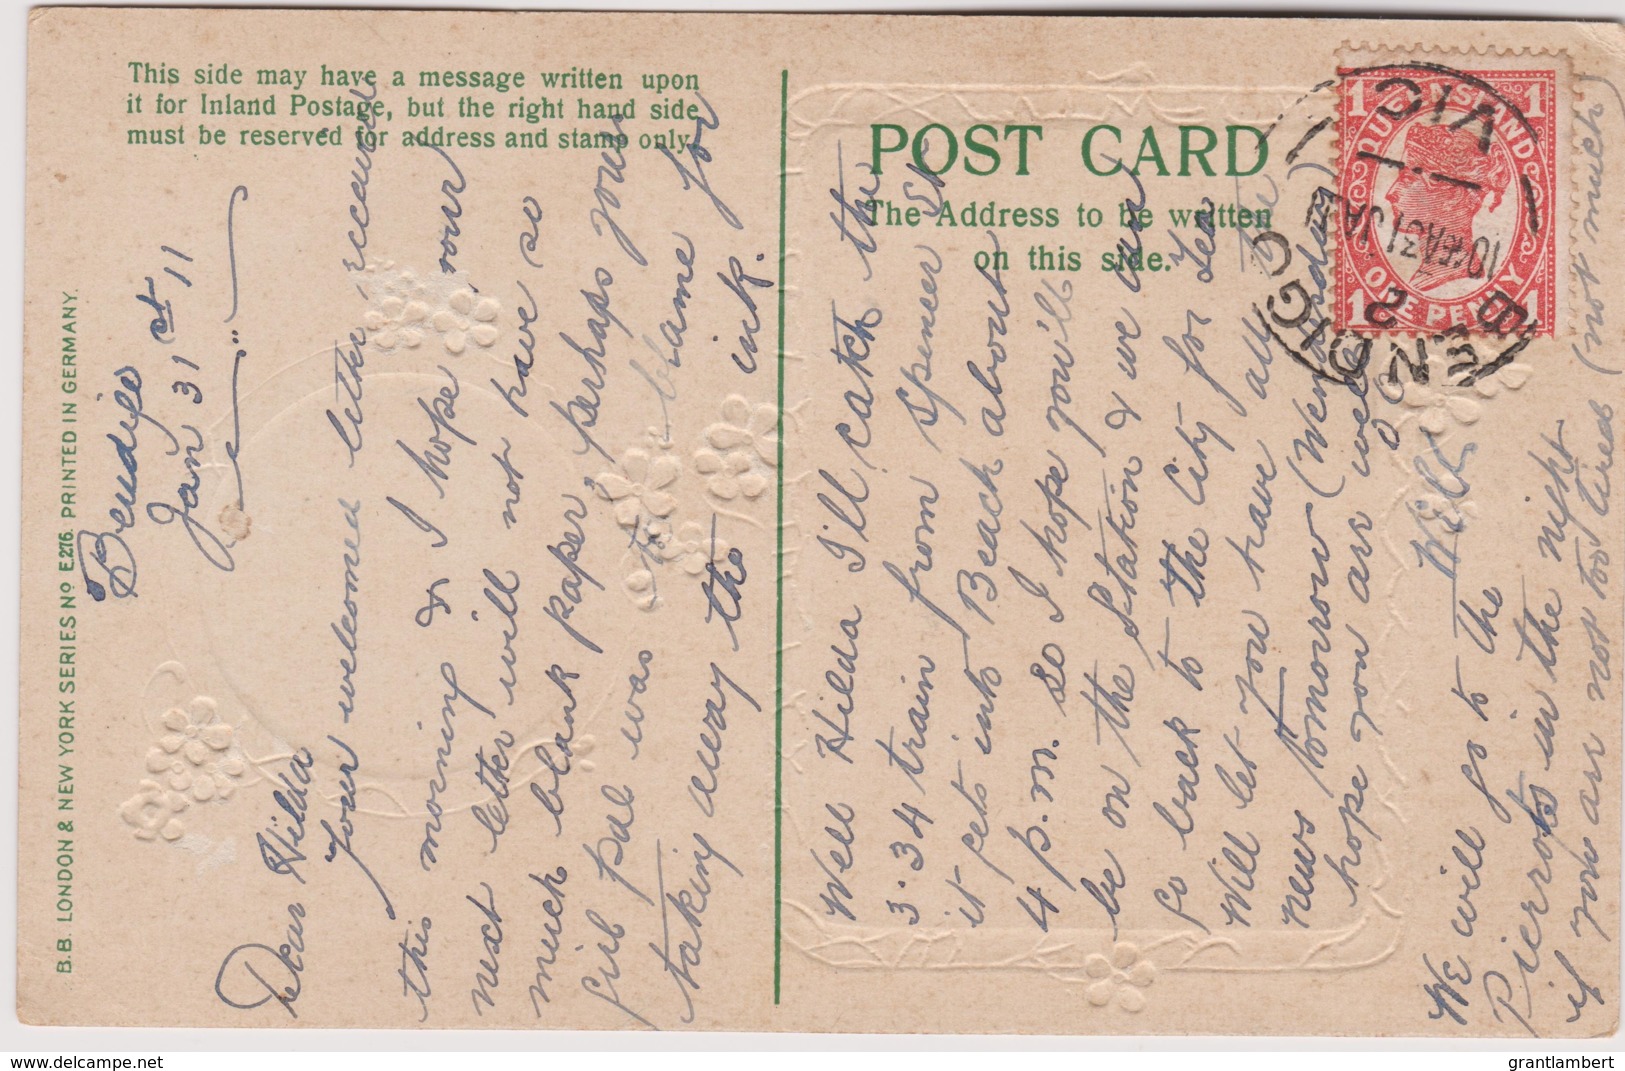 This side may have a message written upon
it for Inland Postage, but the right hand side
must be reserved for address and stamp only.
POST CARD
The Address to be written
on this side.
B.B. LONDON & NEW YORK SERIES No E.276. PRINTED IN GERMANY.
QUEENSLAND
ONE PENNY
1 1
1 1
BENDIGO
VIC
2
31 JA 11
Bendigo
Jan 31st 11
Dear Hilda
Your welcomed letter received
this morning & I hope your
next letter will not have so
much blank paper, perhaps your
girl pal was to blame for
taking away the ink.
Well Hilda I'll catch the
3.34 train from Spenser St
it gets into Beach about
4 p.m. so I hope you'll
be on the Station & we can
go back to the City for Tea
Will let you have all the
news Tomorrow (Wensday)
hope you are well
Well
We will go to the
Pierrots in the night
if you are not too tired (not much)
delcampe.net
grantlambert